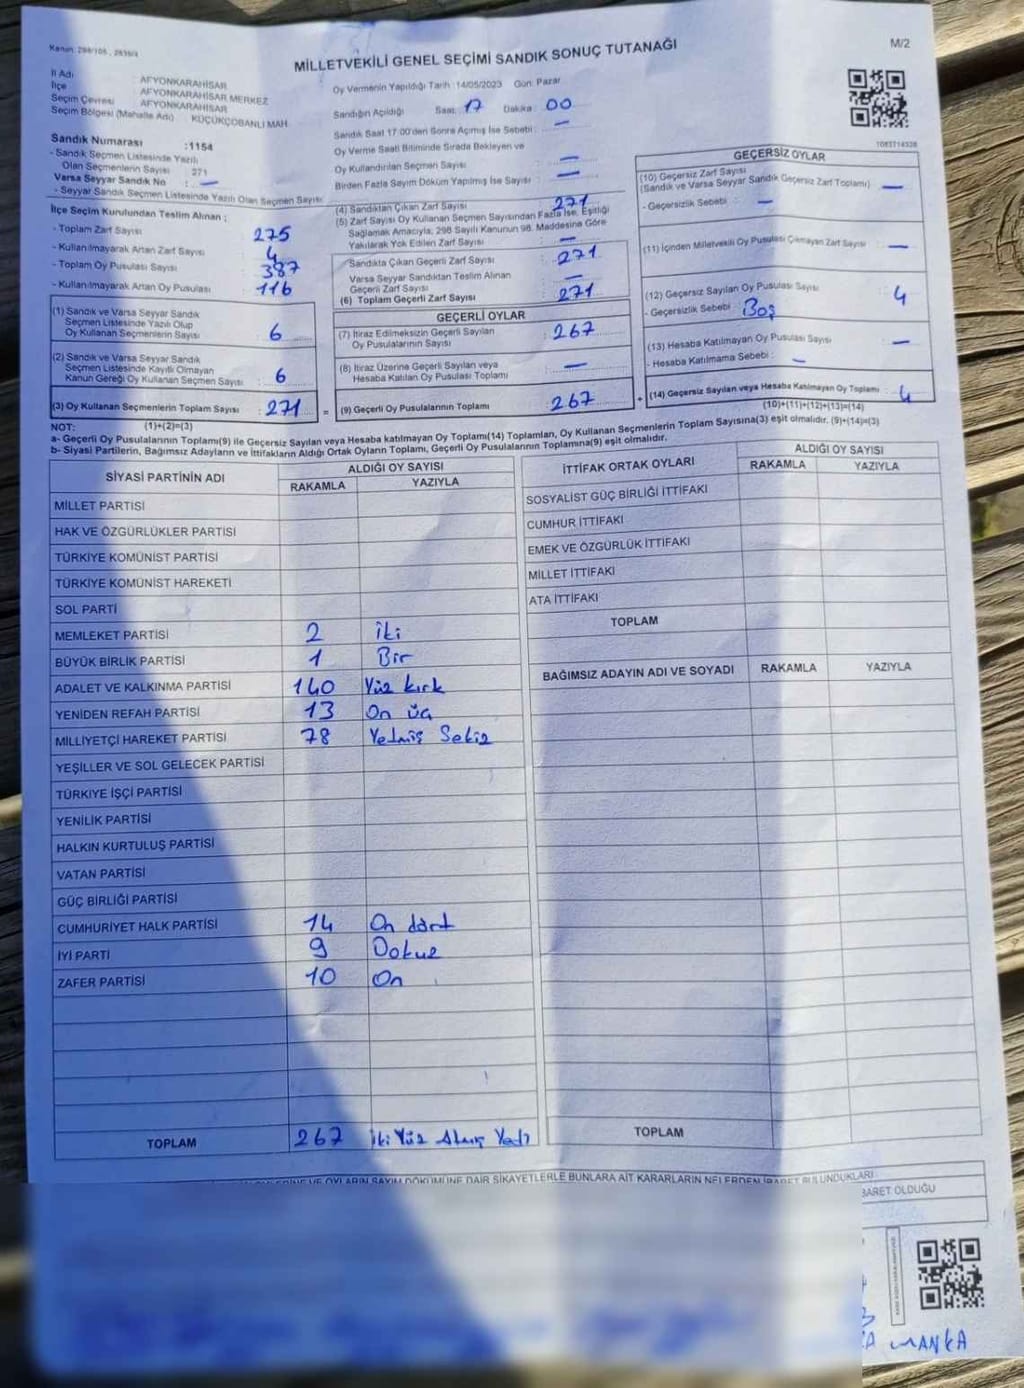 Kanun: 298/105, 2839/4
MİLLETVEKİLİ GENEL SEÇİMİ SANDIK SONUÇ TUTANAĞI
M/2
İl Adı : AFYONKARAHİSAR
İlçe : AFYONKARAHİSAR MERKEZ
Seçim Çevresi : AFYONKARAHİSAR
Seçim Bölgesi (Mahalle Adı) : KÜÇÜKÇOBANLI MAH.
Sandık Numarası :1154
- Sandık Seçmen Listesinde Yazılı
Olan Seçmenlerin Sayısı : 271
Varsa Seyyar Sandık No : —
- Seyyar Sandık Seçmen Listesinde Yazılı Olan Seçmen Sayısı:
Oy Vermenin Yapıldığı Tarih :14/05/2023 Gün: Pazar
Sandığın Açıldığı Saat: 17 Dakika: 00
Sandık Saat 17:00'den Sonra Açılmış İse Sebebi : —
Oy Verme Saati Bitiminde Sırada Bekleyen ve
Oy Kullandırılan Seçmen Sayısı : —
Birden Fazla Sayım Döküm Yapılmış İse Sayısı : —
1083714338
İlçe Seçim Kurulundan Teslim Alınan ;
- Toplam Zarf Sayısı : 275
- Kullanılmayarak Artan Zarf Sayısı : 4
- Toplam Oy Pusulası Sayısı : 387
- Kullanılmayarak Artan Oy Pusulası : 116
(1) Sandık ve Varsa Seyyar Sandık
Seçmen Listesinde Yazılı Olup
Oy Kullanan Seçmenlerin Sayısı : 6
(2) Sandık ve Varsa Seyyar Sandık
Seçmen Listesinde Kayıtlı Olmayan
Kanun Gereği Oy Kullanan Seçmen Sayısı : 6
(3) Oy Kullanan Seçmenlerin Toplam Sayısı : 271
(1)+(2)=(3)
(4) Sandıktan Çıkan Zarf Sayısı : 271
(5) Zarf Sayısı Oy Kullanan Seçmen Sayısından Fazla İse, Eşitliği
Sağlamak Amacıyla, 298 Sayılı Kanunun 98. Maddesine Göre
Yakılarak Yok Edilen Zarf Sayısı : —
Sandıkta Çıkan Geçerli Zarf Sayısı : 271
Varsa Seyyar Sandıktan Teslim Alınan
Geçerli Zarf Sayısı : —
(6) Toplam Geçerli Zarf Sayısı : 271
GEÇERLİ OYLAR
(7) İtiraz Edilmeksizin Geçerli Sayılan
Oy Pusulalarının Sayısı : 267
(8) İtiraz Üzerine Geçerli Sayılan veya
Hesaba Katılan Oy Pusulası Toplamı : —
= (9) Geçerli Oy Pusulalarının Toplamı : 267
GEÇERSİZ OYLAR
(10) Geçersiz Zarf Sayısı
(Sandık ve Varsa Seyyar Sandık Geçersiz Zarf Toplamı) : —
- Geçersizlik Sebebi : —
(11) İçinden Milletvekili Oy Pusulası Çıkmayan Zarf Sayısı : —
(12) Geçersiz Sayılan Oy Pusulası Sayısı : 4
- Geçersizlik Sebebi : Boş
(13) Hesaba Katılmayan Oy Pusulası Sayısı : —
- Hesaba Katılmama Sebebi : —
+ (14) Geçersiz Sayılan veya Hesaba Katılmayan Oy Toplamı : 4
(10)+(11)+(12)+(13)=(14)
NOT:
a- Geçerli Oy Pusulalarının Toplamı(9) ile Geçersiz Sayılan veya Hesaba katılmayan Oy Toplamı(14) Toplamları, Oy Kullanan Seçmenlerin Toplam Sayısına(3) eşit olmalıdır. (9)+(14)=(3)
b- Siyasi Partilerin, Bağımsız Adayların ve İttifakların Aldığı Ortak Oyların Toplamı, Geçerli Oy Pusulalarının Toplamına(9) eşit olmalıdır.
SİYASİ PARTİNİN ADI
ALDIĞI OY SAYISI
RAKAMLA YAZIYLA
MİLLET PARTİSİ
HAK VE ÖZGÜRLÜKLER PARTİSİ
TÜRKİYE KOMÜNİST PARTİSİ
TÜRKİYE KOMÜNİST HAREKETİ
SOL PARTİ
MEMLEKET PARTİSİ 2 İki
BÜYÜK BİRLİK PARTİSİ 1 Bir
ADALET VE KALKINMA PARTİSİ 140 Yüz kırk
YENİDEN REFAH PARTİSİ 13 On üç
MİLLİYETÇİ HAREKET PARTİSİ 78 Yetmiş Sekiz
YEŞİLLER VE SOL GELECEK PARTİSİ
TÜRKİYE İŞÇİ PARTİSİ
YENİLİK PARTİSİ
HALKIN KURTULUŞ PARTİSİ
VATAN PARTİSİ
GÜÇ BİRLİĞİ PARTİSİ
CUMHURİYET HALK PARTİSİ 14 On dört
İYİ PARTİ 9 Dokuz
ZAFER PARTİSİ 10 On
TOPLAM 267 İki Yüz Atmış Yedi
İTTİFAK ORTAK OYLARI
ALDIĞI OY SAYISI
RAKAMLA YAZIYLA
SOSYALİST GÜÇ BİRLİĞİ İTTİFAKI
CUMHUR İTTİFAKI
EMEK VE ÖZGÜRLÜK İTTİFAKI
MİLLET İTTİFAKI
ATA İTTİFAKI
TOPLAM
BAĞIMSIZ ADAYIN ADI VE SOYADI RAKAMLA YAZIYLA
TOPLAM
VE OYLARIN SAYIM DÖKÜMÜNE DAİR ŞİKAYETLERLE BUNLARA AİT KARARLARIN NELERDEN İBARET BULUNDUKLARI
BARET OLDUĞU
MANKA